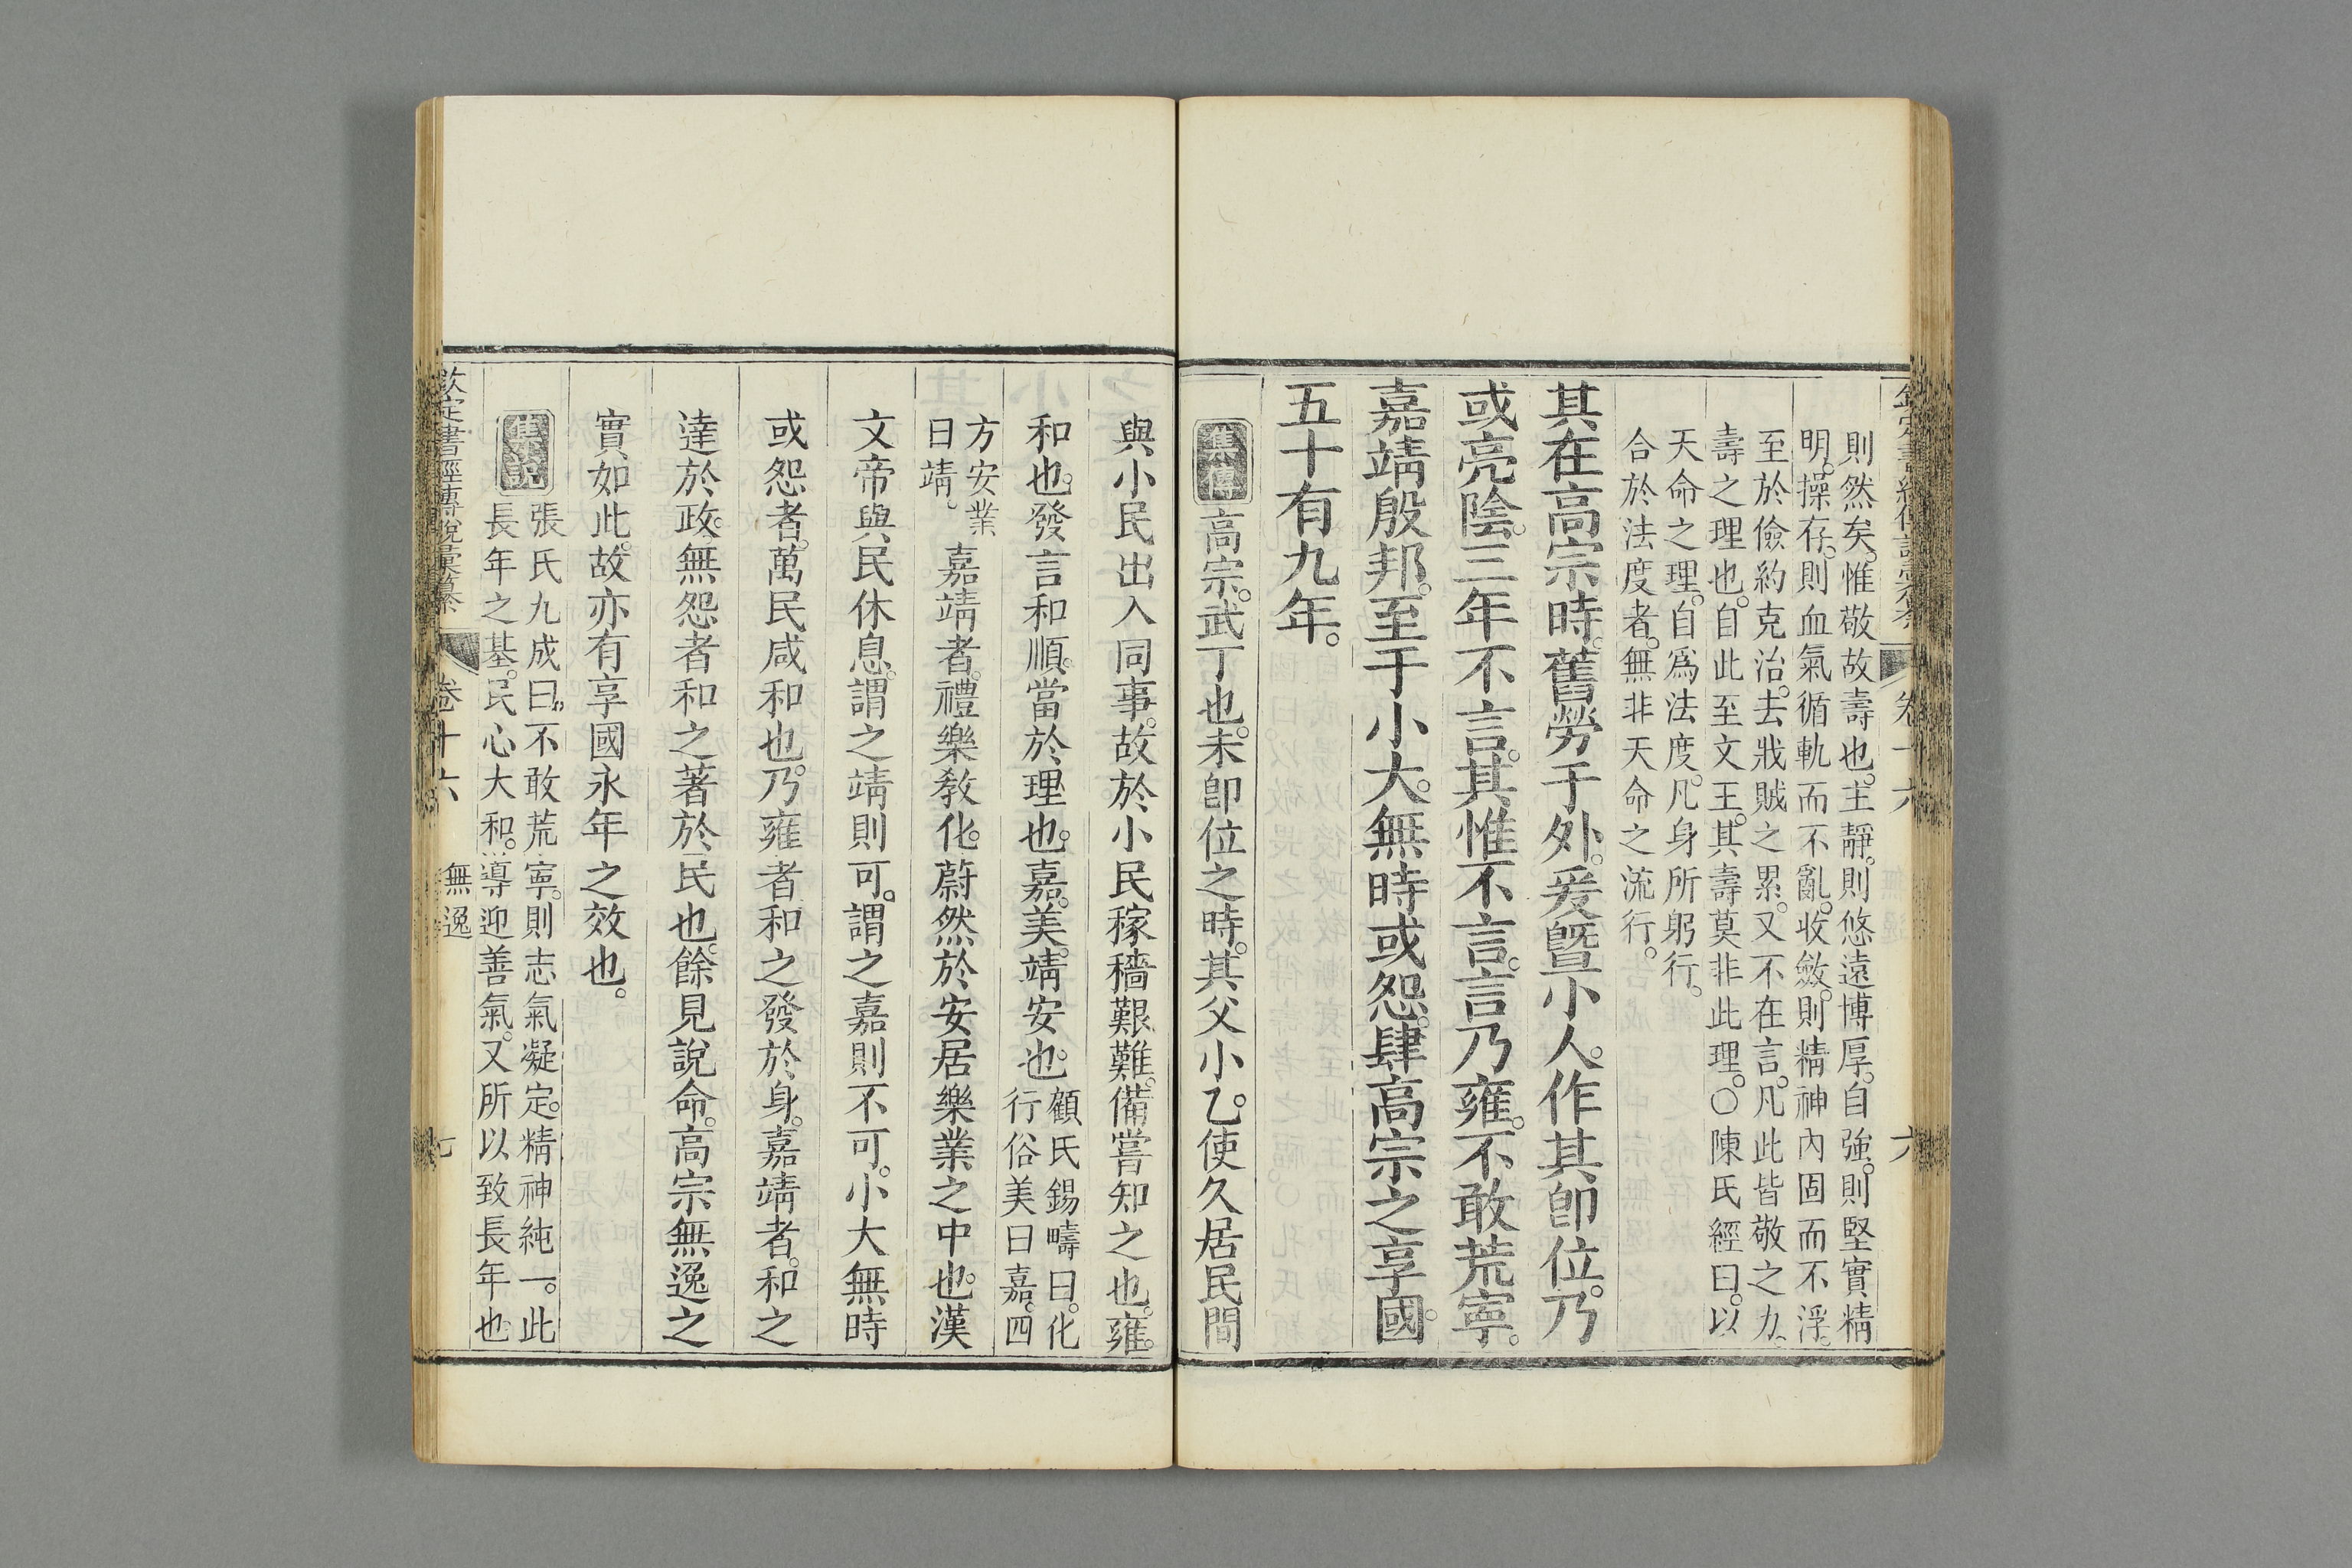 則然矣。惟敬故壽也。主靜。則悠遠博厚。自強。則堅實精
明。操存。則血氣循軌而不亂。收斂。則精神內固而不浮。
至於儉約克治。去戕賊之累。又不在言。凡此皆敬之力。
壽之理也。自此至文王。其壽莫非此理。○陳氏經曰。以
天命之理。自爲法度。凡身所躬行。
合於法度者。無非天命之流行。
其在高宗時。舊勞于外。爰曁小人。作其卽位。乃
或亮陰。三年不言。其惟不言。言乃雍。不敢荒寧。
嘉靖殷邦。至于小大。無時或怨。肆高宗之享國。
五十有九年。
集傳 高宗。武丁也。未卽位之時。其父小乙。使久居民間
與小民出入同事。故於小民稼穡艱難。備嘗知之也。雍。
和也。發言和順。當於理也。嘉。美。靖。安也。顧氏錫疇曰。化
行俗美曰嘉。四
方安業
曰靖。嘉靖者。禮樂敎化。蔚然於安居樂業之中也。漢
文帝與民休息。謂之靖則可。謂之嘉則不可。小大無時
或怨者。萬民咸和也。乃雍者。和之發於身。嘉靖者。和之
達於政。無怨者和之著於民也。餘見說命。高宗無逸之
實如此。故亦有享國永年之效也。
集說 張氏九成曰。不敢荒寧。則志氣凝定。精神純一。此
長年之基。民心大和。導迎善氣。又所以致長年也
欽定書經傳說彙纂 卷十六 無逸 七